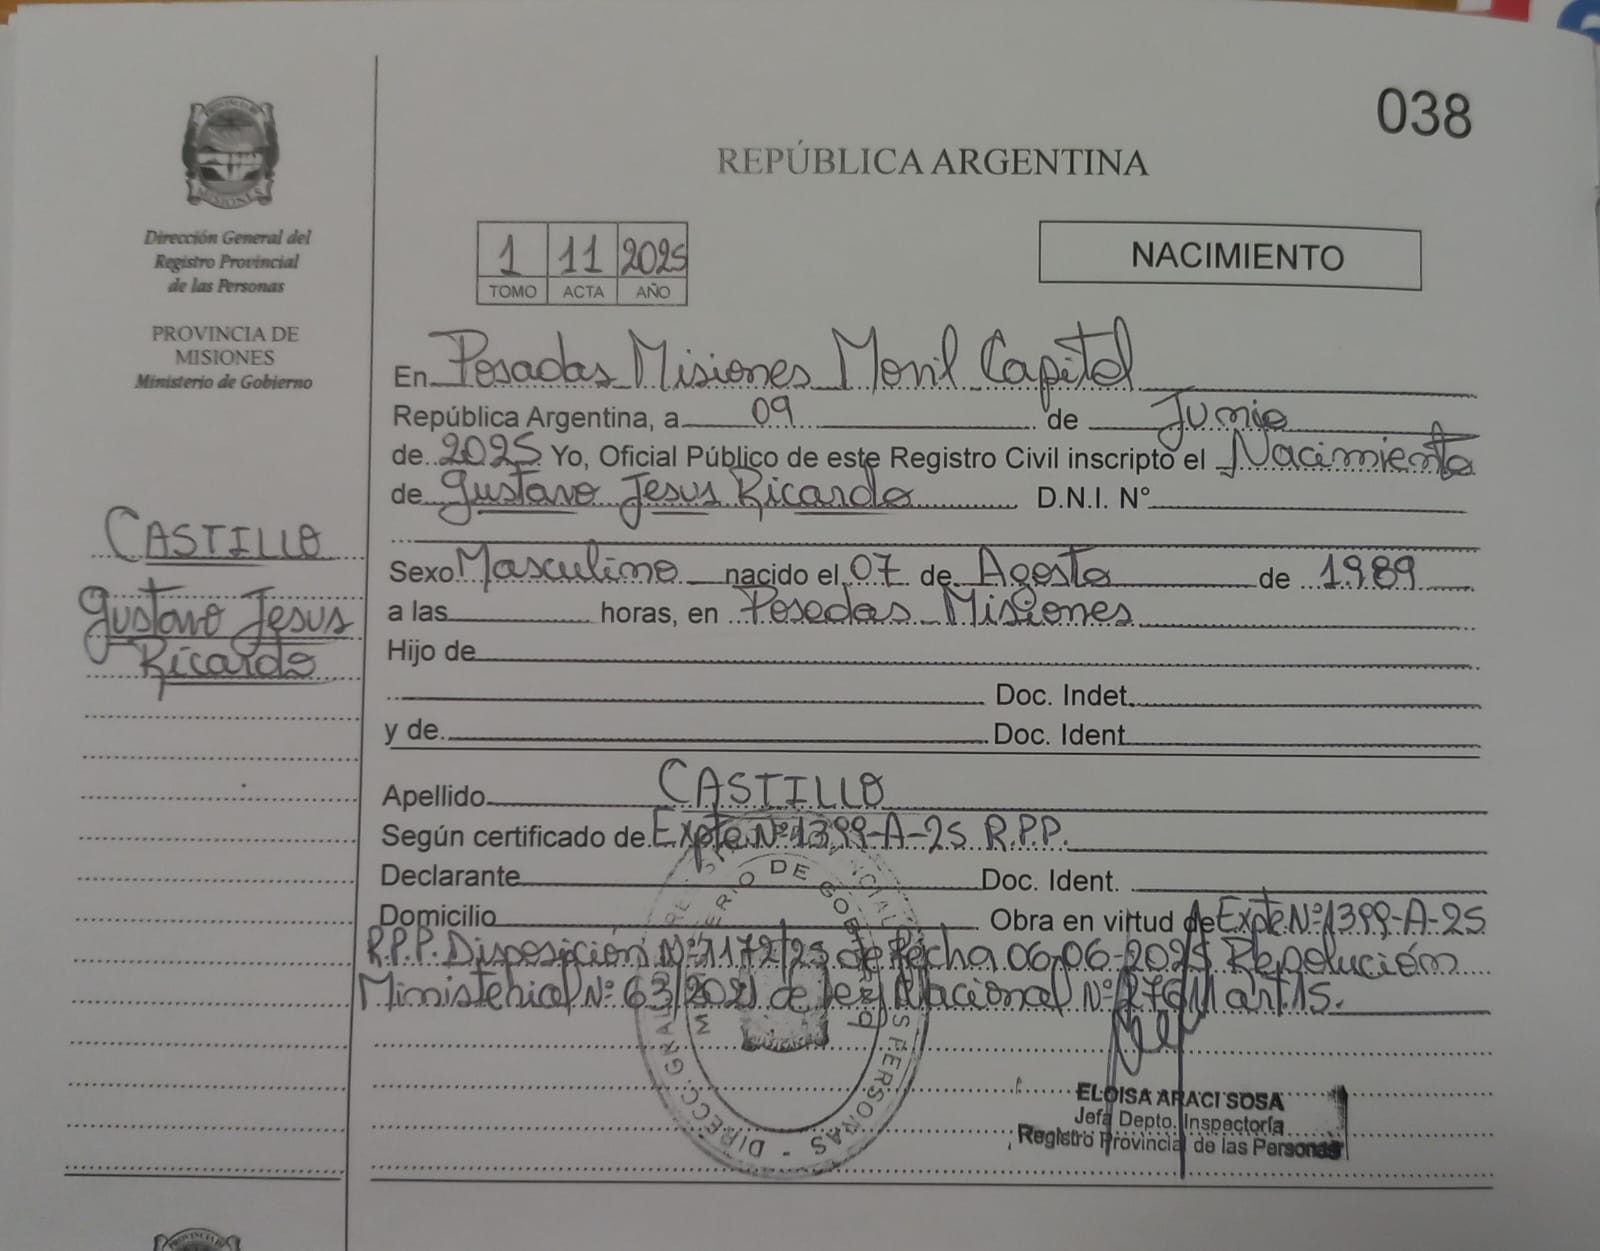 038
REPÚBLICA ARGENTINA
PROVINCIA DE
MISIONES
Dirección General del
Registro Provincial
de las Personas
PROVINCIA DE
MISIONES
Ministerio de Gobierno
1 11 2025
TOMO ACTA AÑO
NACIMIENTO
En Posadas Misiones Movil Capital
República Argentina, a 09 de Junio
de 2025 Yo, Oficial Público de este Registro Civil inscripto el Nacimiento
de Gustavo Jesus Ricardo D.N.I. N°
Sexo Masculino nacido el 07 de Agosto de 1989
a las horas, en Posadas Misiones
Hijo de
Doc. Indet.
y de. Doc. Ident
Apellido CASTILLO
Según certificado de Expte Nº 1399-A-25 R.P.P.
Declarante Doc. Ident.
Domicilio Obra en virtud de Expte Nº 1399-A-25
R.P.P. Disposición Nº 1172/25 de fecha 06-06-2025 Resolución
Ministerial Nº 63/2021 de ley Nacional Nº 27611 art.15.
CASTILLO
Gustavo Jesus
Ricardo
MINISTERIO DE GOBIERNO
DIRECC. GRAL. PERSONAS
ELOISA ARACI SOSA
Jefa Depto. Inspectoría
Registro Provincial de las Personas
PROVINCIA DE